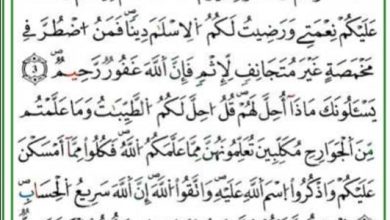 عَلَيْكُمْ نِعْمَتِي وَرَضِيتُ لَكُمُ الْإِسْلَٰمَ دِينًا فَمَنُ اضْطُرَّ فِي
مَخْمَصَةٍ غَيْرَ مُتَجَانِفٍ لِّإِثْمٍ فَإِنَّ اللَّهَ غَفُورٌ رَّحِيمٌ ۝٤
يَسْـَٔلُونَكَ مَاذَا أُحِلَّ لَهُمْ قُلُ احِلَّ لَكُمُ الطَّيِّبَٰتُ وَمَا عَلَّمْتُم
مِّنَ الْجَوَارِحِ مُكَلِّبِينَ تُعَلِّمُونَهُنَّ مِمَّا عَلَّمَكُمُ اللَّهُ فَكُلُوا مِمَّا أَمْسَكْنَ
عَلَيْكُمْ وَاذْكُرُوا اسْمَ اللَّهِ عَلَيْهِ وَاتَّقُوا اللَّهَ إِنَّ اللَّهَ سَرِيعُ الْحِسَابِ